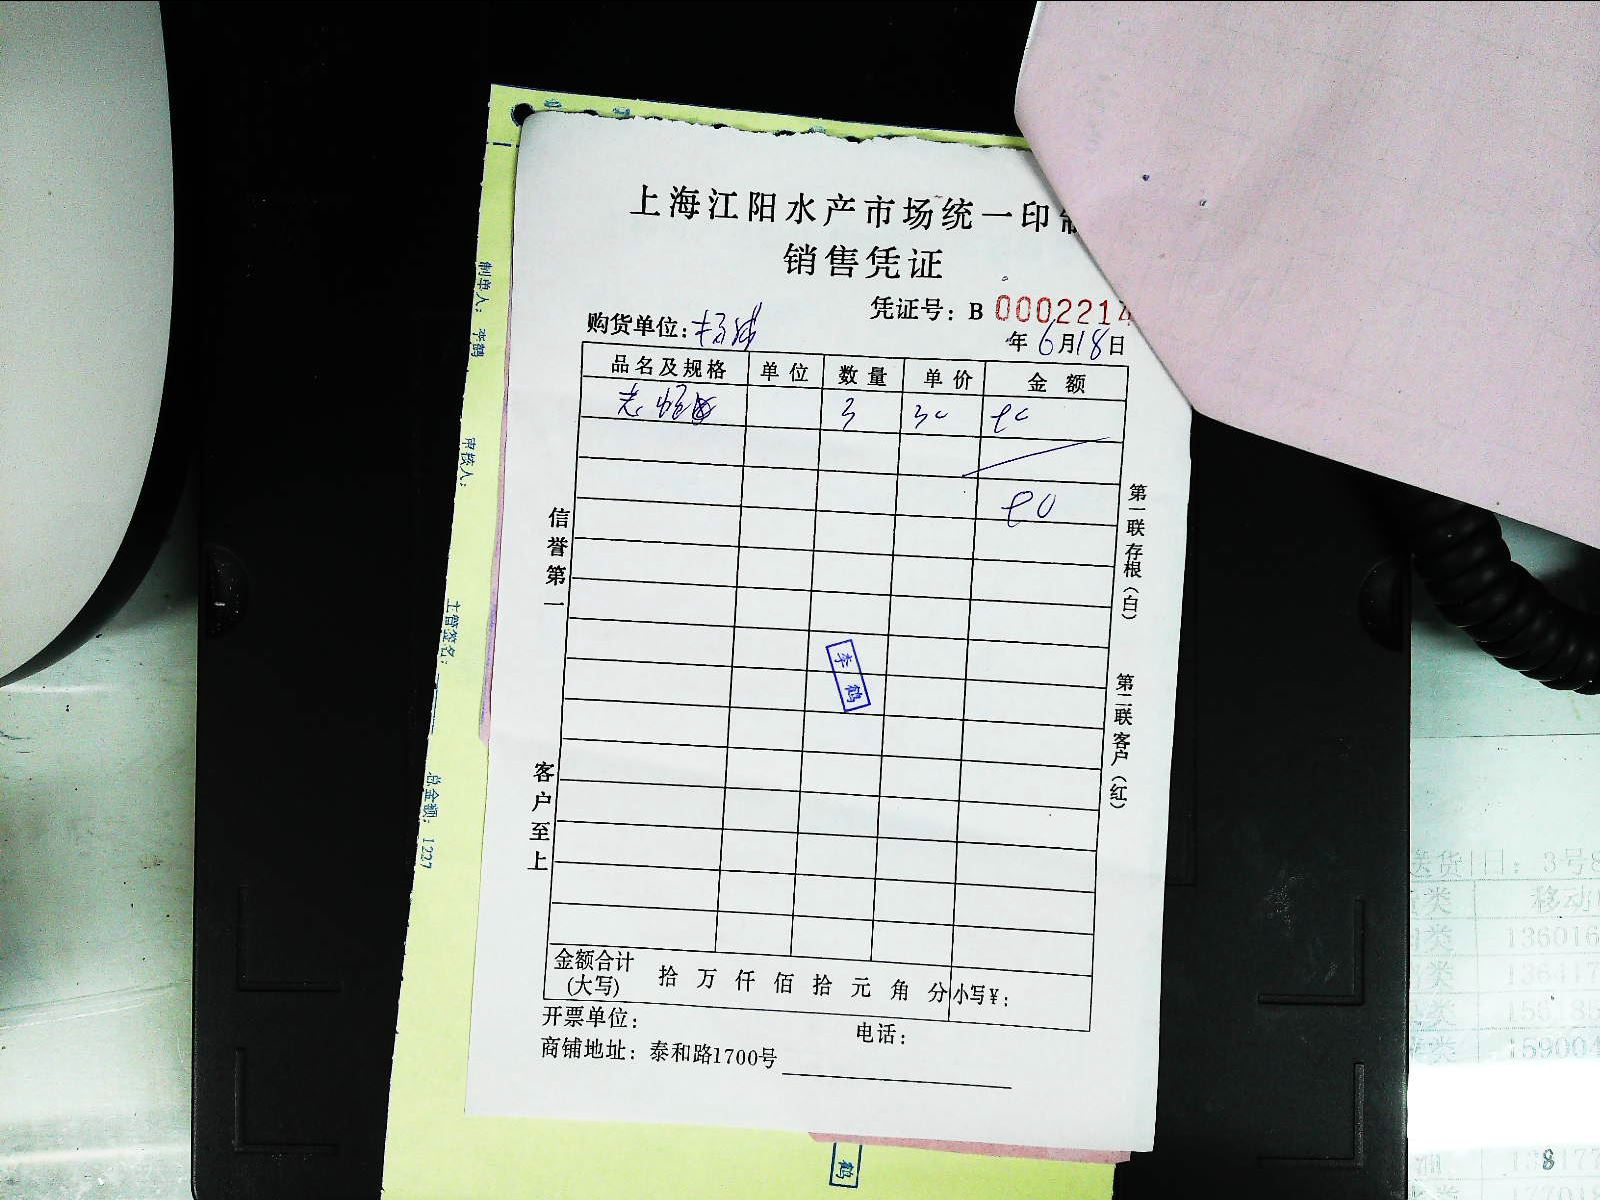 上海江阳水产市场统一印制
销售凭证
凭证号：B 0002214
购货单位：
年 6月18日
品名及规格 单位 数量 单价 金额
3 30 90
90
信誉第一
客户至上
第一联存根（白）
第二联客户（红）
李鹤
金额合计(大写) 拾 万 仟 佰 拾 元 角 分 小写¥：
开票单位： 电话：
商铺地址：泰和路1700号
制单人：李鹤
审核人：
主管签名：
总金额：1227
鹤
送货日：3号8
类 移动
类 136016
类
类
类 159004